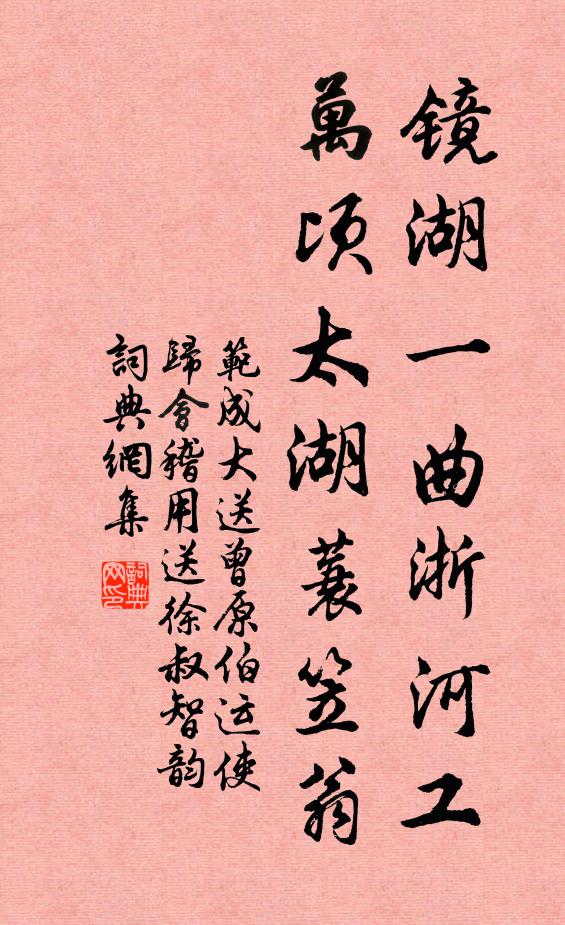 镜湖一曲浙河工
萬顷太湖蓑笠翁
範成大送曾原伯运使
歸會稽用送徐叔智韵
詞典網集
詞典網印